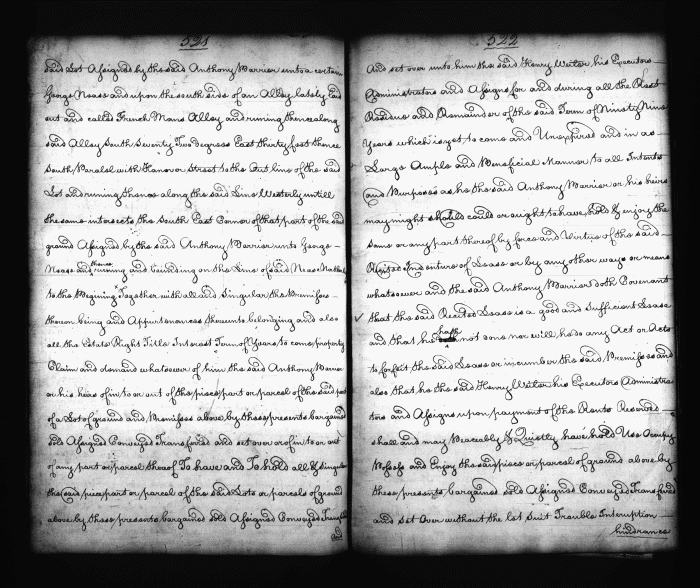 521
Said Lot Assigned by the said Anthony Warrior unto a certain
George Nease and upon the south side of an Alley lately laid
out and called French Mans Alley and runing thence along
said Alley South Seventy Two degrees East thirty feet thence
South Paralel with Hanover Street to the Out line of the said
Lot and runing thence along the said Line Westerly untill
the same intersects the South East Corner of that part of the said
ground Assigned by the said Anthony Warrior unto George
Nease and thence runing and bounding on the Line of said Nease
to the Begining Together with all and Singular the Premises
thereon being and Appurtenances thereunto belonging and also
all the Estate Right Title Interest Term of Years to come property
Claim and demand whatsoever of him the said Anthony Warrior
or his heirs of in to or out of the piece part or parcel of the said part
of a Lot of ground and Premises above by these presents bargained
sold Assigned Conveyed Transfered and set over or of in to or out
of any part or parcel thereof To have and To hold all & Singular
the said piece part or parcel of the said Lots or parcels of ground
above by these presents bargained sold Assigned Conveyed Transfered
and
522
And set over unto him the said Henry Weiter his Executors
Administrators and Assigns for and during all the Rest
Residue and Remainder of the said Term of Ninety Nine
Years which is yet to come and Unexpired and in as
Large Ample and Beneficial Manner to all Intents
and Purposes as he the said Anthony Warrior or his heirs
may might should could or ought to have hold & enjoy the
same or any part thereof by force and Virtue of the said
Recited Indenture of Lease or by any other ways or means
whatsoever and the said Anthony Warrior doth Covenant
that the said Recited Lease is a good and Sufficient Lease
and that he hath not done nor will he do any Act or Acts
to forfeit the said Lease or incumber the said Premises and
also that he the said Henry Weiter his Executors Administra
tors and Assigns upon payment of the Rents Reserved
shall and may Peaceably & Quietly have hold Use Occupy
Possess and Enjoy the said piece or parcel of ground above by
these presents bargained sold Assigned Conveyed Transfered
and set Over without the let Suit Trouble Interuption
hindrance